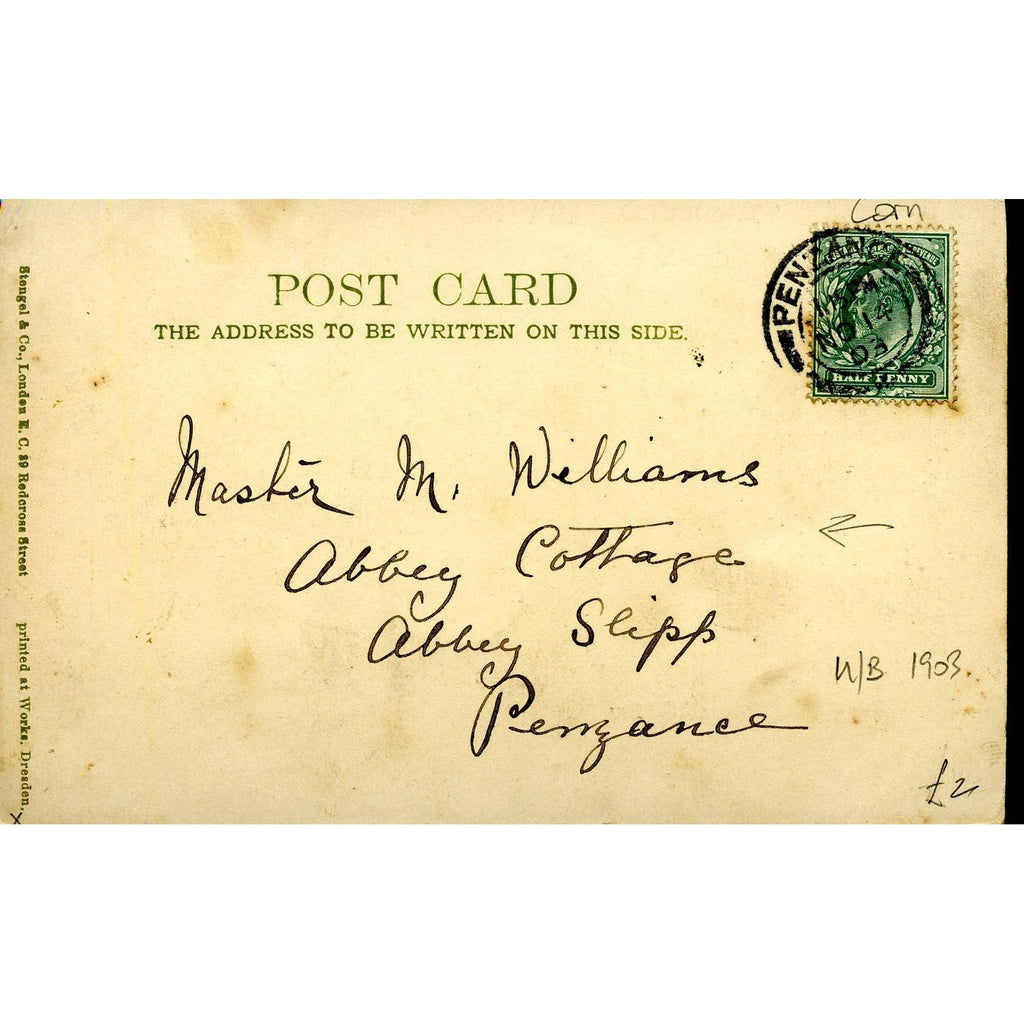 Corn
POST CARD
THE ADDRESS TO BE WRITTEN ON THIS SIDE.
PENZANCE
NO 14
03
HALFPENNY
Master M. Williams
Abbey Cottage
Abbey Slipp
Penzance
U/B 1903.
£2
Stengel & Co., London E. C. 39 Redcross Street printed at Works, Dresden.